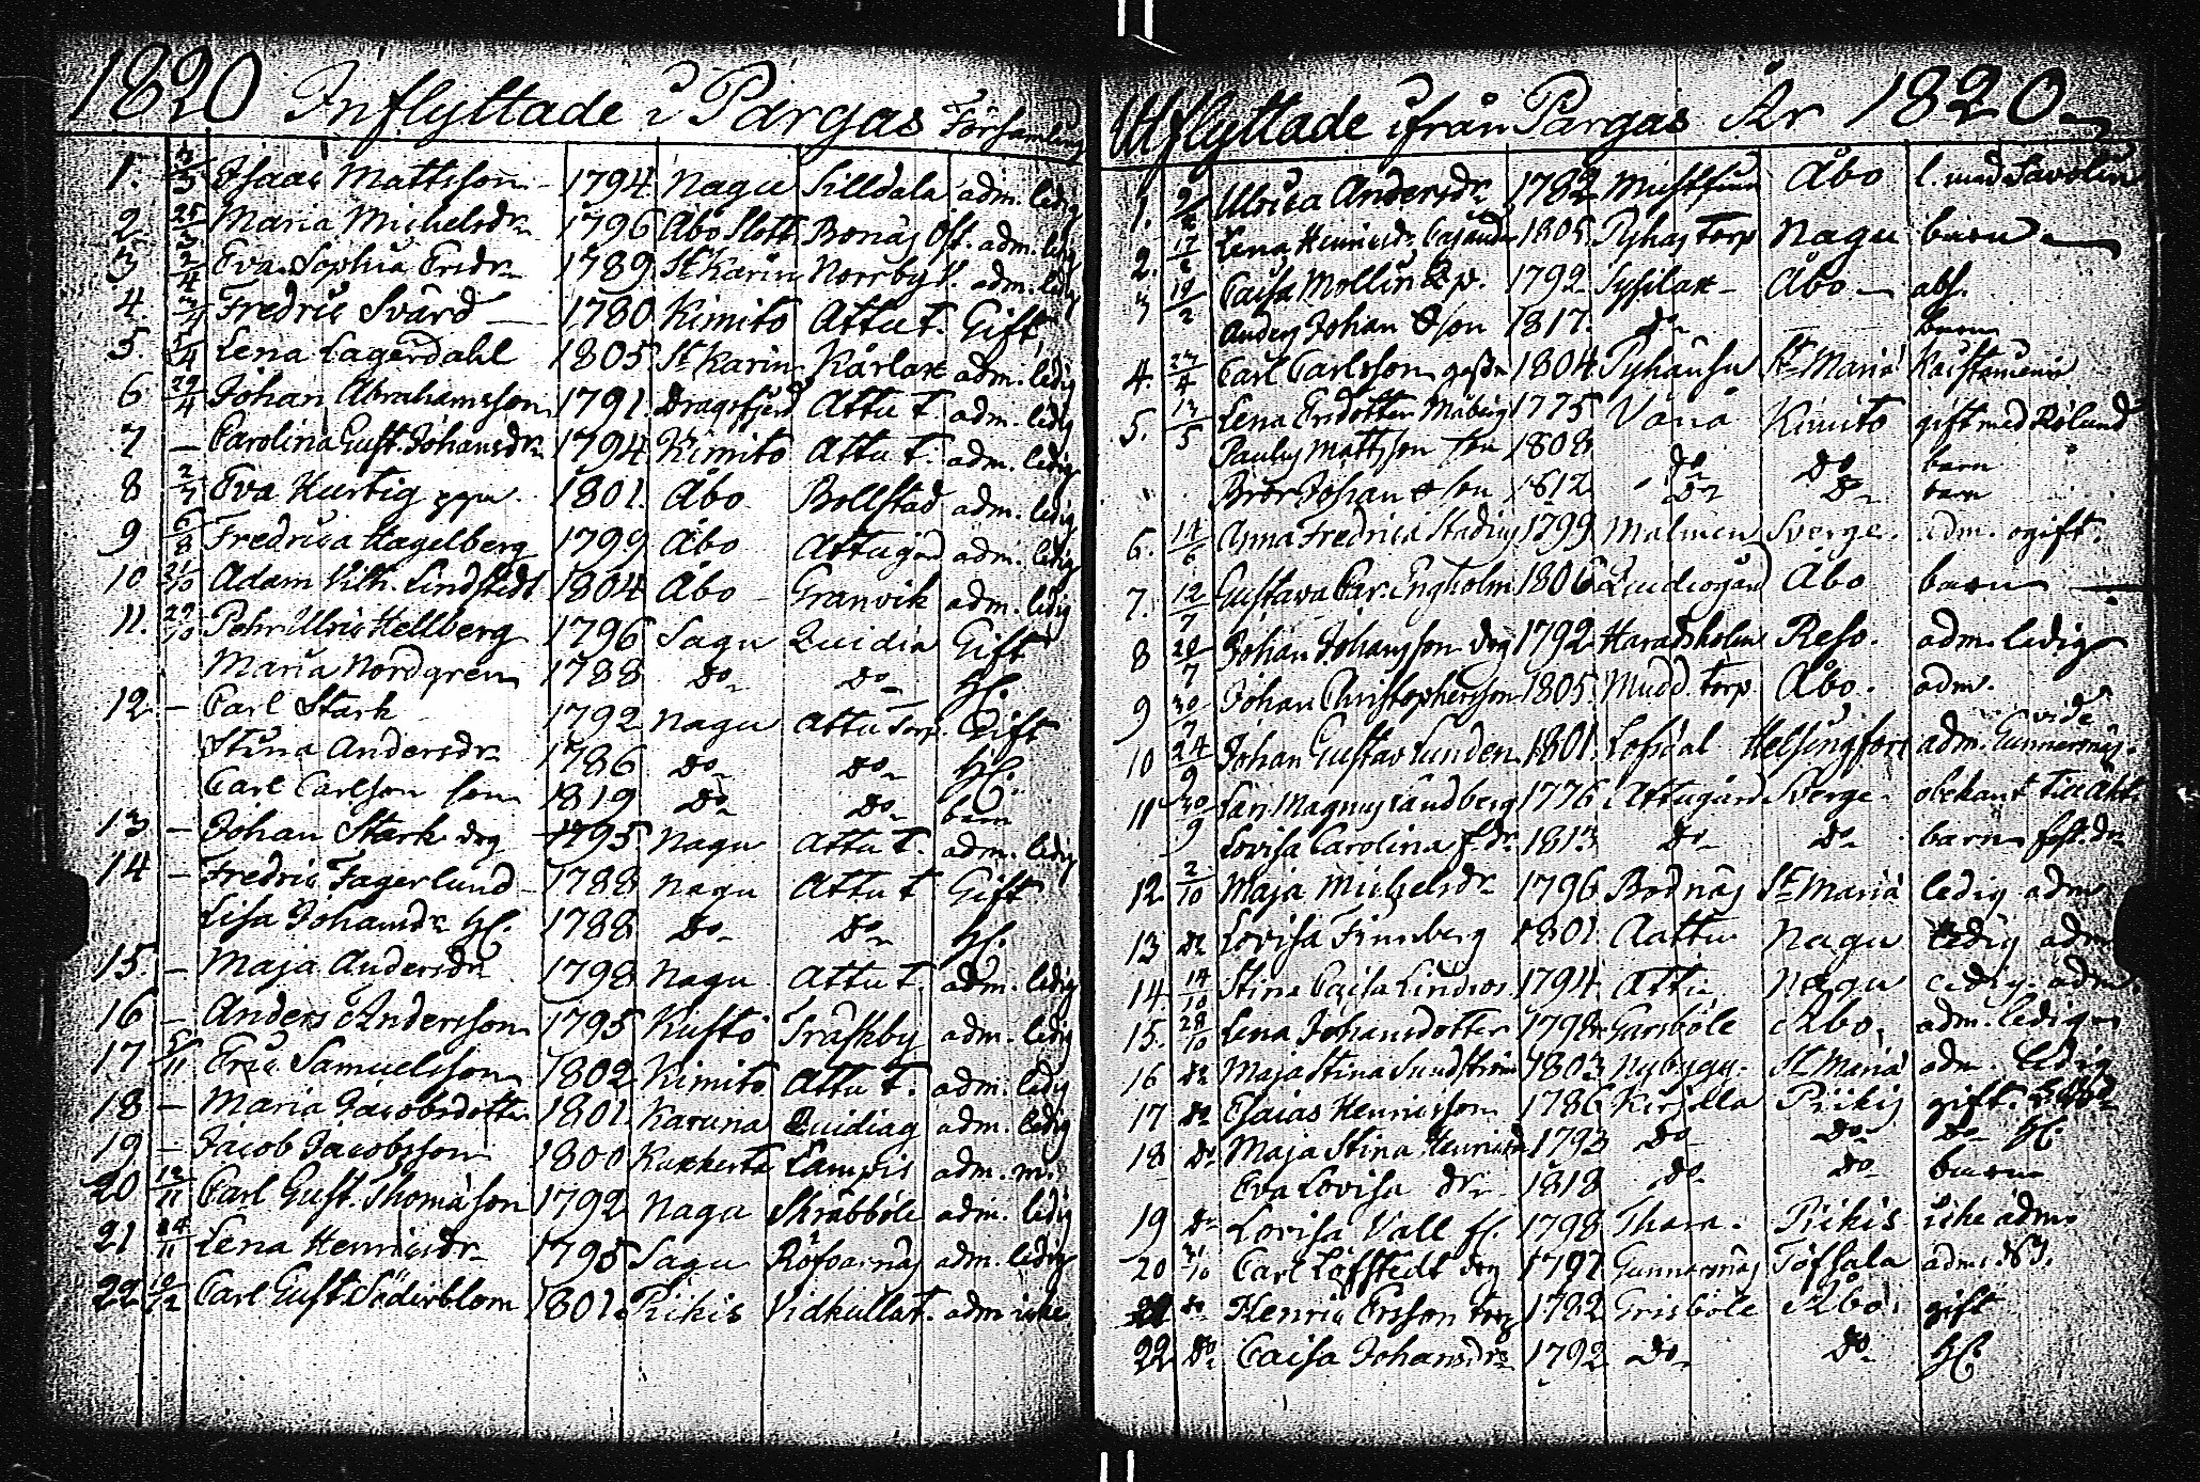 1820 Inflyttade i Pargas Församling
1. 3/3 Isaac Mattsson 1794 Nagu Silldala adm. ledig
2. 25/3 Maria Michelsdr 1796 Åbo Slott Bonäs adm. ledig
3 2/4 Eva Sophia Ersdr 1789 St Karin Norrby adm. ledig
4. 3/4 Fredric Svärd 1780 Kimito Attu t. Gift
5. 5/4 Lena Lagerdahl 1805 St Karin Kårlax adm. ledig
6 29/4 Johan Abrahamsson 1791. Dragsfjerd Attu t adm. ledig
7 – Carolina Gust. Johansdr 1794 Kimito Attu t. adm. ledig
8 2/7 Eva Hurtig 1801. Åbo Bollstad adm. ledig
9 6/8 Fredrica Hagelberg 1799 Åbo Attu gård adm. ledig
10 21/10 Adam Vilh. Lindstedt 1804 Åbo Granvik adm. ledig
11. 29/10 Pehr Ulric Hellberg 1796 Sagu Quidia Gift
Maria Nordgren 1788 Do Do H.
12 – Carl Stark 1792 Nagu Attu torp. Gift
Stina Andersdr 1786 Do Do H.
Carl Carlson son 1819 Do Do barn
13 – Johan Stark drg 1795 Nagu Attu t. adm. ledig
14 – Fredric Fagerlund 1788 Nagu Attu t Gift
Lisa Johansdr H. 1788 Do Do H.
15. – Maja Andersdr 1798 Nagu Attu t. adm. ledig
16 – Anders Andersson 1795 Kustö Träskby adm. ledig
17 5/11 Eric Samuelsson 1802 Kimito Attu t. adm. ledig
18 – Maria Jacobsdotter 1801. Karuna Quidiag adm. ledig
19 – Jacob Jacobsson 1800 Lampis adm. m.
20 12/11 Carl Gust. Thomasson 1792 Nagu Skräbböle adm. ledig
21 24/11 Lena Henricsdr 1795 Sagu Röfvarnäs adm. ledig
22 9/12 Carl Gust. Söderblom 1801. Pikis Vidkulla t. adm icke
Utflyttade ifrån Pargas År 1820
1. 2/2 Ulrica Andersdr 1782 Mustfinn Åbo l. med Savolin
2. 17/2 Lena Henricsdr Cajander 1805 Pyhas torp Nagu barn
3 19/2 Caisa Mollin 1792 Sysilax Åbo abs.
Anders Johan son 1817. Do barn
4. 27/4 Carl Carlsson 1804 Pyhänsu St Mariæ
5. 13/5 Lena Ersdotter Måberg 1775 Vånå Kimito gift med Rölund
Paulus Mattsson son 1808 Do Do barn
Bror Johan son 1812 Do Do barn
6. 14/6 Anna Fredrica Stadius 1799 Malmen Sverge. adm. ogift.
7. 12/7 Gustava Car. Engholm 1806 Quidiagård Åbo barn
8 28/7 Johan Johansson drg 1792 Haradsholm Reso. adm. ledig
9 30/7 Johan Christophersson 1805. Mudd. torp Åbo. adm.
10 24/9 Johan Gustav Lunden 1801. Lofsdal Helsingfors adm. vide Gunnarsnäs.
11 30/9 Magnus Sandberg 1776 Attugård Sverge obekant
Lovisa Carolina f. dr. 1813 Do Do barn
12. 2/10 Maja Michelsdr 1796 Bodnäs St Mariæ ledig adm
13 Do Lovisa Finnberg 1801 Aattu Nagu ledig adm
14 14/10 Stina Caisa Lindros 1794 Attu Nagu ledig. adm.
15. 28/10 Lena Johansdotter 1798 Garsböle Åbo. adm. ledig
16 Do Maja Stina Sundström 1803 Nybygg. St Mariæ adm. ledig
17 Do Esaias Henricsson 1786 Kirjalla Piikis gift.
18 Do Maja Stina Henricsdr 1793 Do Do Do H.
Eva Lovisa dr. 1818 Do Do barn
19 Do Lovisa Vall 1798 Piikis icke adm.
20 31/10 Carl Löfstedt drg 1797 Gunnarsnäs Töfsala adm.
21 Do Henric Ersson torp 1782 Grisböle Åbo. gift
22 Do Caisa Johansdr 1792 Do Do H.